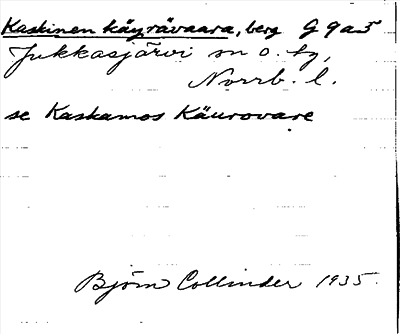 Kaskinen käyrävaara, berg G 9 a 5
Jukkasjärvi sn o. tg,
Norrb. l.
se Kaskamos Käurovare
Björn Collinder 1935.